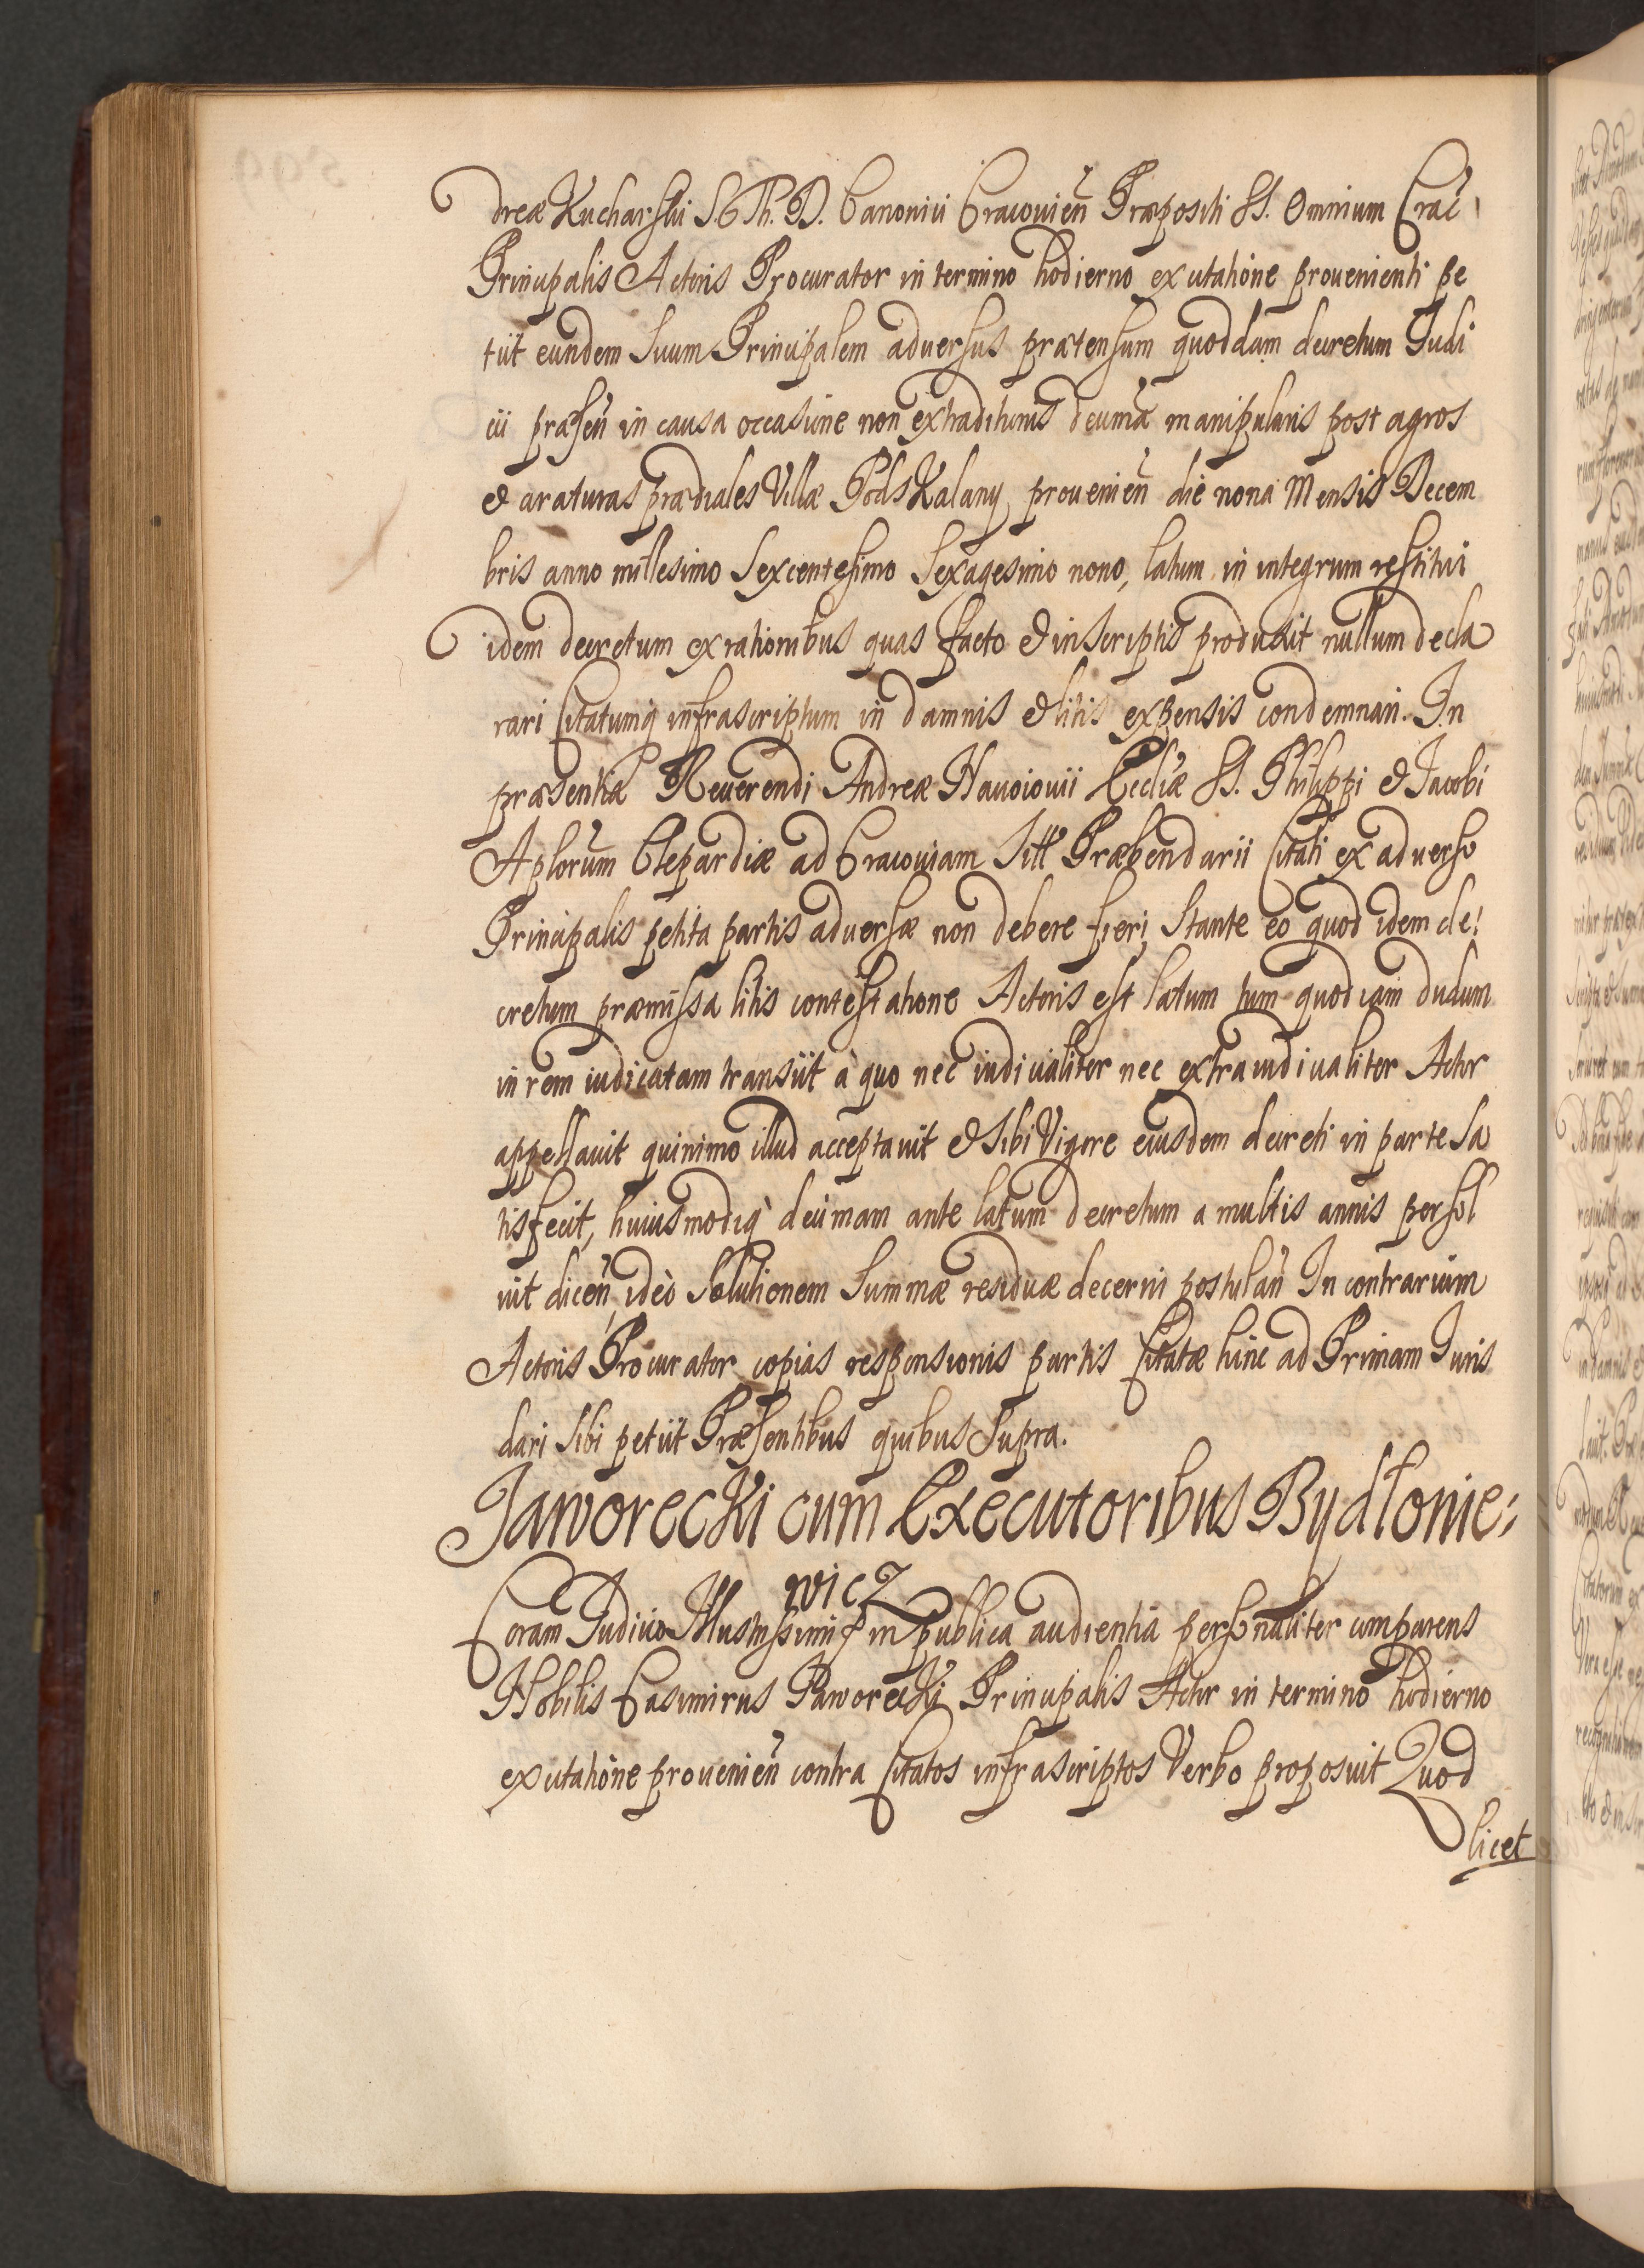 dreæ Kucharski S. Th. D. Canonici Cracovieñ Præpositi SS. Omnium Crac̃
Principalis Actoris Procurator in termino hodierno ex citatione provenienti pe
tiit eundem Suum Principalem adversus prætensum quoddam decretum Judi
cii præseñ in causa occasione non extraditionis decimæ manipularis post agros
& araturas prædiales Villæ PodsKalany provenieñ die nona Mensis Decem
bris anno millesimo Sexcentesimo Sexagesimo nono, latum in integrum restitui
idem decretum ex rationibus quas facto & in Scriptis produxit nullum decla
rari Citatumq infrascriptum in damnis & litis expensis condemnari. In
præsentia Reverendi Andreæ Havoiovii Eccliæ SS. Philippi & Jacobi
Aplorum Clepardiæ ad Cracoviam Præbendarii Citati ex adverso
Principalis petita partis adversæ non debere fieri Stante eo quod idem de
cretum præmissa litis contestatione Actoris est latum tum quod iam dudum
in rem iudicatam transiit à quo nec iudicialiter nec extraiudicialiter Actor
appellavit quinimo illud acceptavit & Sibi Vigore eiusdem decreti in parte Sa
tisfecit, huiusmodiq decimam ante latum decretum a multis annis persol
vit diceñ, ideò Solutionem Summæ residuæ decerni postulañ In contrarium
Actoris Procurator copias responsionis partis Citatæ hinc ad Primam Juris
dari Sibi petiit Præsentibus quibus Supra.
Jaworecki cum Executoribus Bydłonie:
wicz
Coram Judicio Illustrissimi in publica audientia personaliter comparens
Nobilis Casimirus Jaworecki Principalis Actor in termino hodierno
ex citatione provenieñ contra Citatos infrascriptos Verbo proposuit Quod
licet